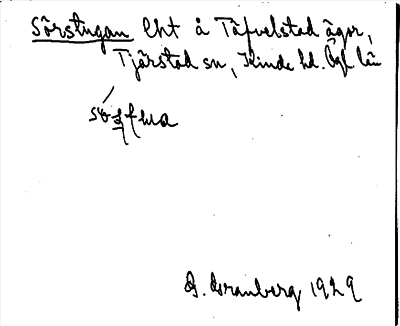 Sörstugan lht å Täfvelstad ägor,
Tjärstad sn, Kinda hd. Ögl län
A. Granberg 1929